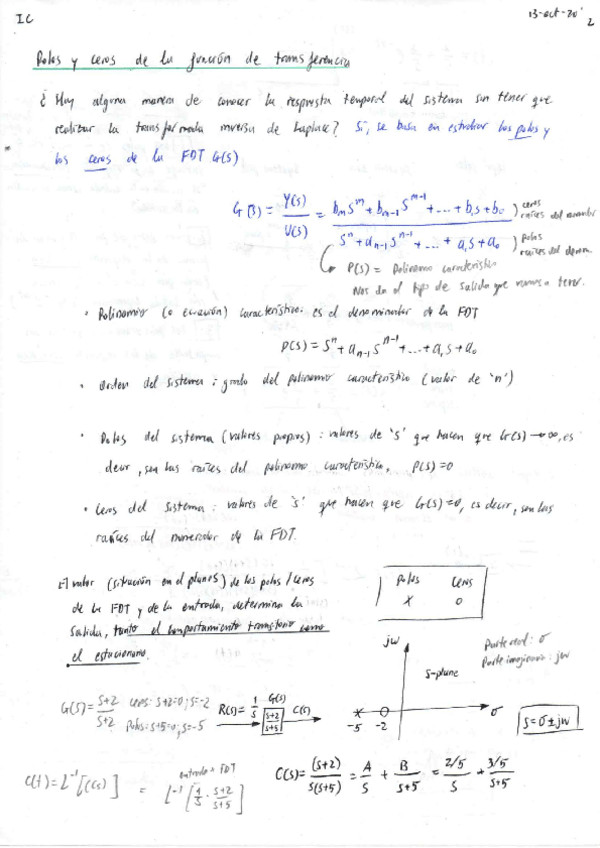 IC
13-oct-20
2
Polos y ceros de la función de transferencia
¿ Hay alguna manera de conocer la respuesta temporal del sistema sin tener que
realizar la transformada inversa de Laplace? Sí, se basa en estudiar los polos y
los ceros de la FDT G(s)
G(s) = Y(s)/U(s) = (b_m s^m + b_{m-1} s^{m-1} + ... + b_1 s + b_0)/(s^n + a_{n-1} s^{n-1} + ... + a_1 s + a_0)
ceros
raíces del
polos
raíces del
P(s) = Polinomio característico
Nos da el tipo de salida que vamos a tener.
· Polinomio (o ecuación) característico: es el denominador de la FDT
P(s) = s^n + a_{n-1} s^{n-1} + ... + a_1 s + a_0
· Orden del sistema : grado del polinomio característico (valor de 'n')
· Polos del sistema (valores propios) : valores de 's' que hacen que G(s) → ∞, es
decir, son las raíces del polinomio característico, P(s)=0
· Ceros del sistema : valores de 's' que hacen que G(s)=0, es decir, son las
raíces del numerador de la FDT.
El valor (situación en el plano s) de los polos/ceros
de la FDT y de la entrada, determina la
salida, tanto el comportamiento transitorio como
el estacionario.
Polos Ceros
X O
jω
s-plane
-5 -2
σ
Parte real: σ
Parte imaginaria: jω
s = σ ± jω
G(s) = s+2/s+2
Ceros: s+2=0; s=-2
Polos: s+5=0; s=-5
R(s) = 1/s
G(s)
s+2/s+5
C(s)
C(t) = L^-1 [C(s)] = L^-1 [1/s · s+2/s+5]
entrada x FDT
C(s) = (s+2)/s(s+5) = A/s + B/s+5 = 2/5/s + 3/5/s+5